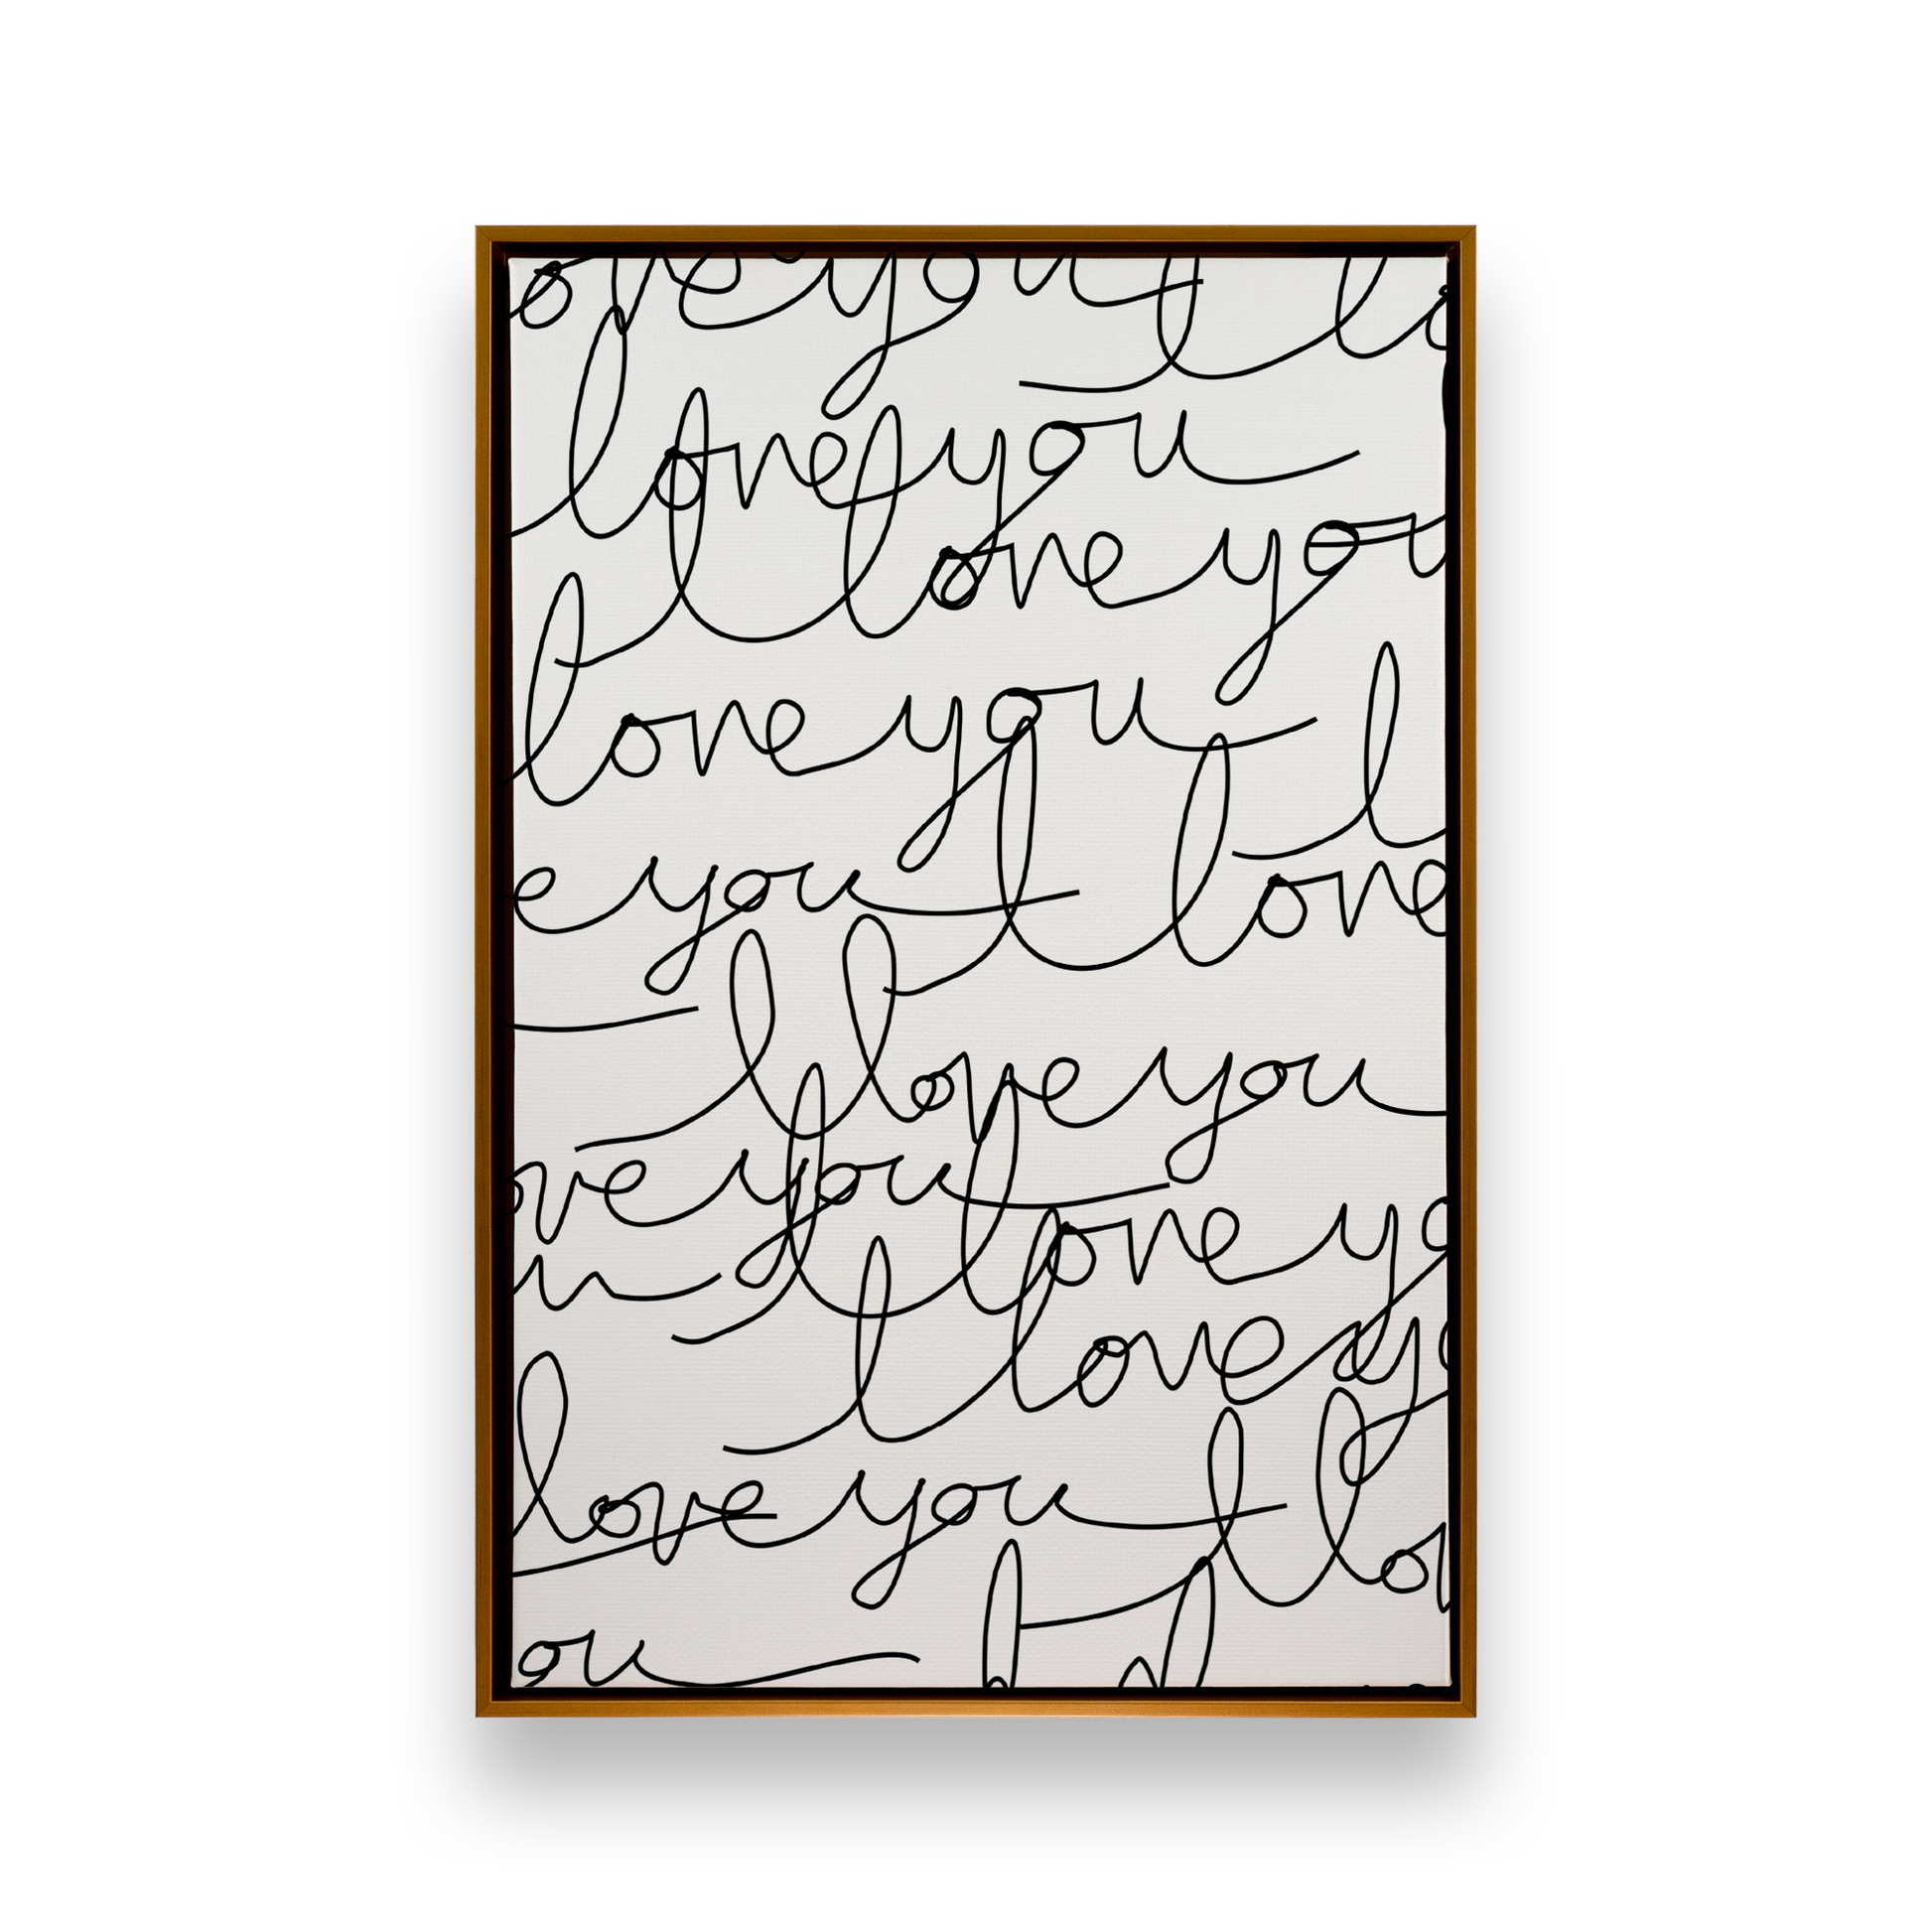 ove you I lo
love you
I love you
love you I
e you I love
I love you
ove you
u I love yo
I love yo
love you I lov
ou I